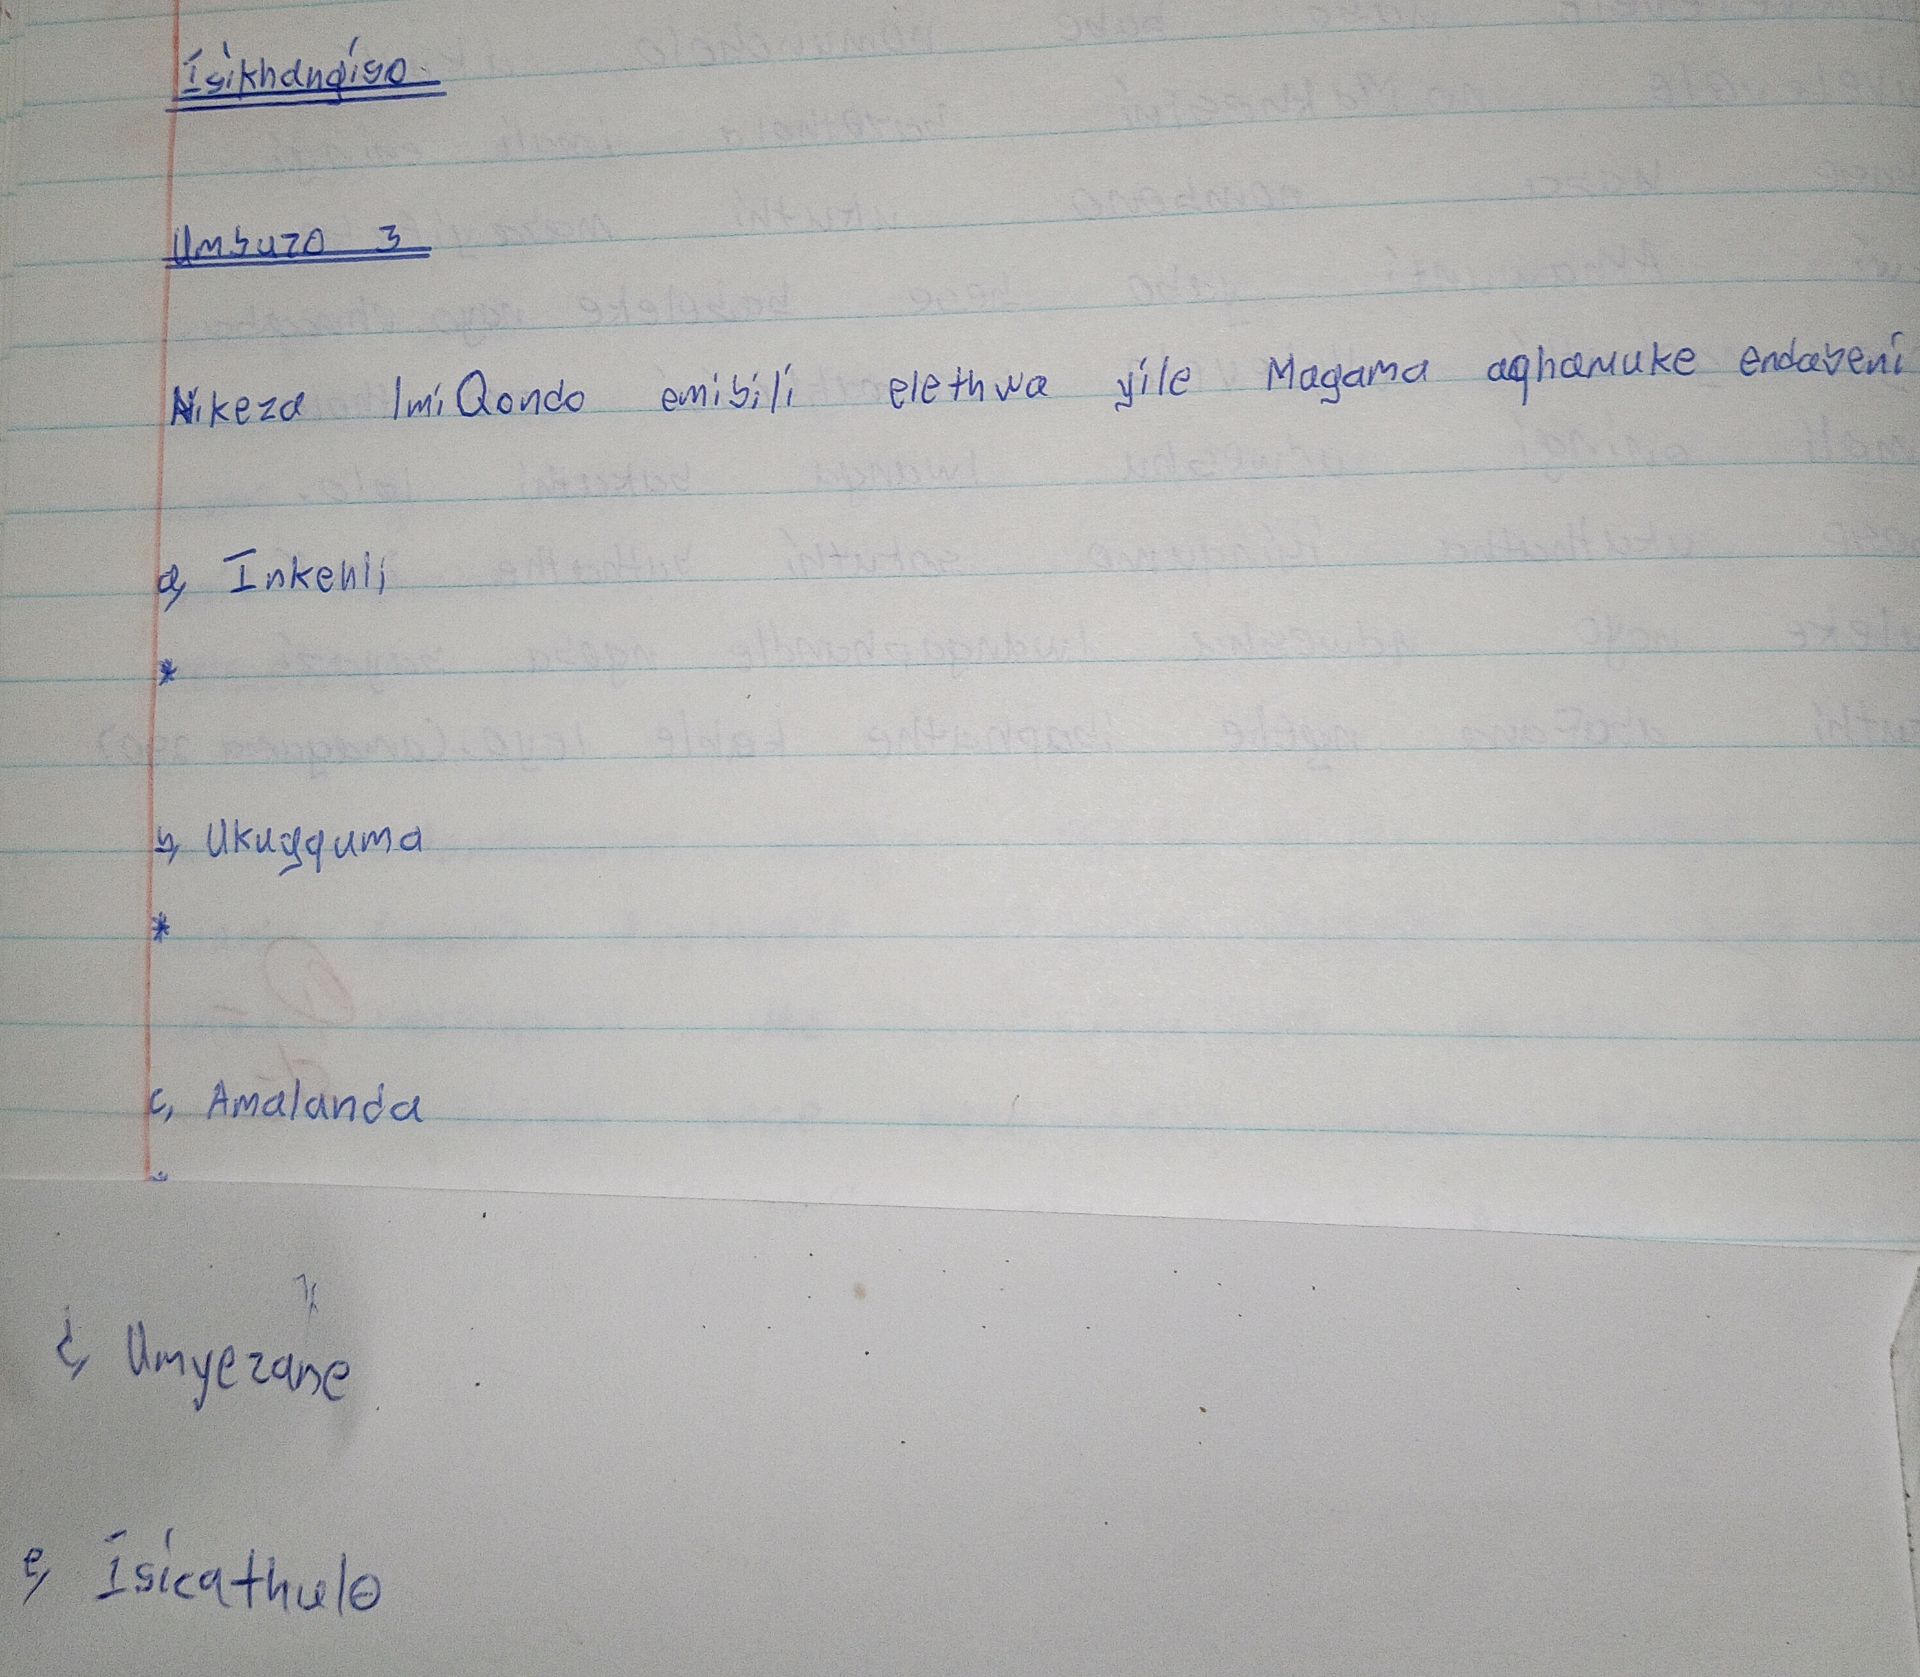 Isikhangiso.
Umbuzo 3
Nikeza ImiQondo emibili elethwa yile Magama aqhamuke endabeni
a, Inkehli
*
b, Ukugquma
*
c, Amalanda
d, Umyezane
e, Isicathulo